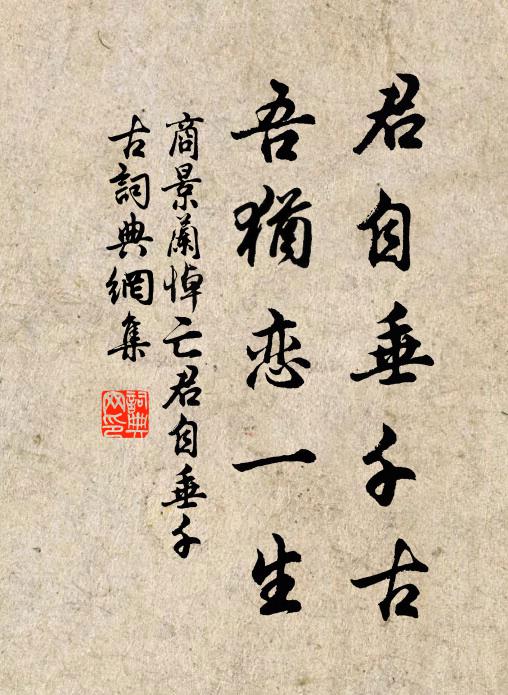 君自垂千古
吾猶恋一生
商景蘭悼亡君自垂千
古詞典網集
詞典
网印